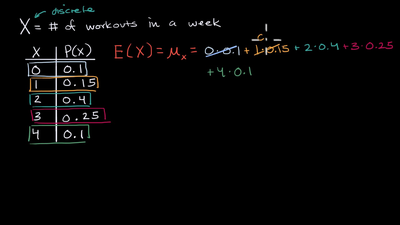 discrete
X = # of workouts in a week
X P(X)
0 0.1
1 0.15
2 0.4
3 0.25
4 0.1
E(X) = μₓ = 0·0.1 + 1·0.15 + 2·0.4 + 3·0.25
+ 4·0.1